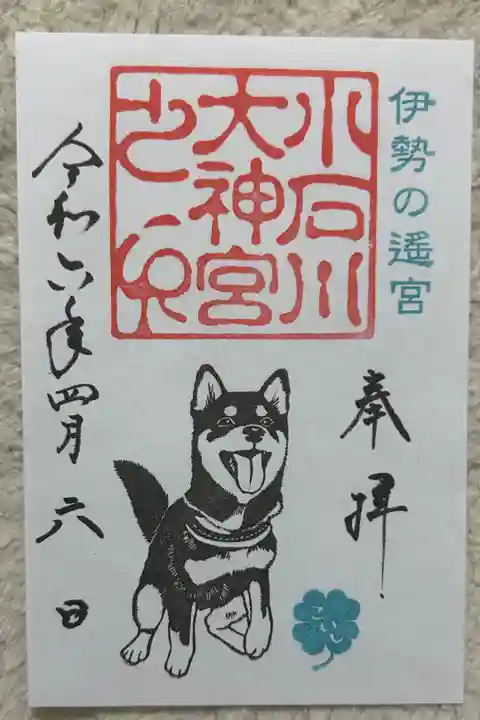 伊勢の遥宮
奉拝
小石川
大神宮
之印
令和六年四月六日